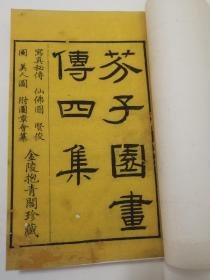 芥子園畫
傳四集
寫真秘傳 仙佛圖 賢俊
圖 美人圖 附圖章會纂
金陵抱青閣珍藏